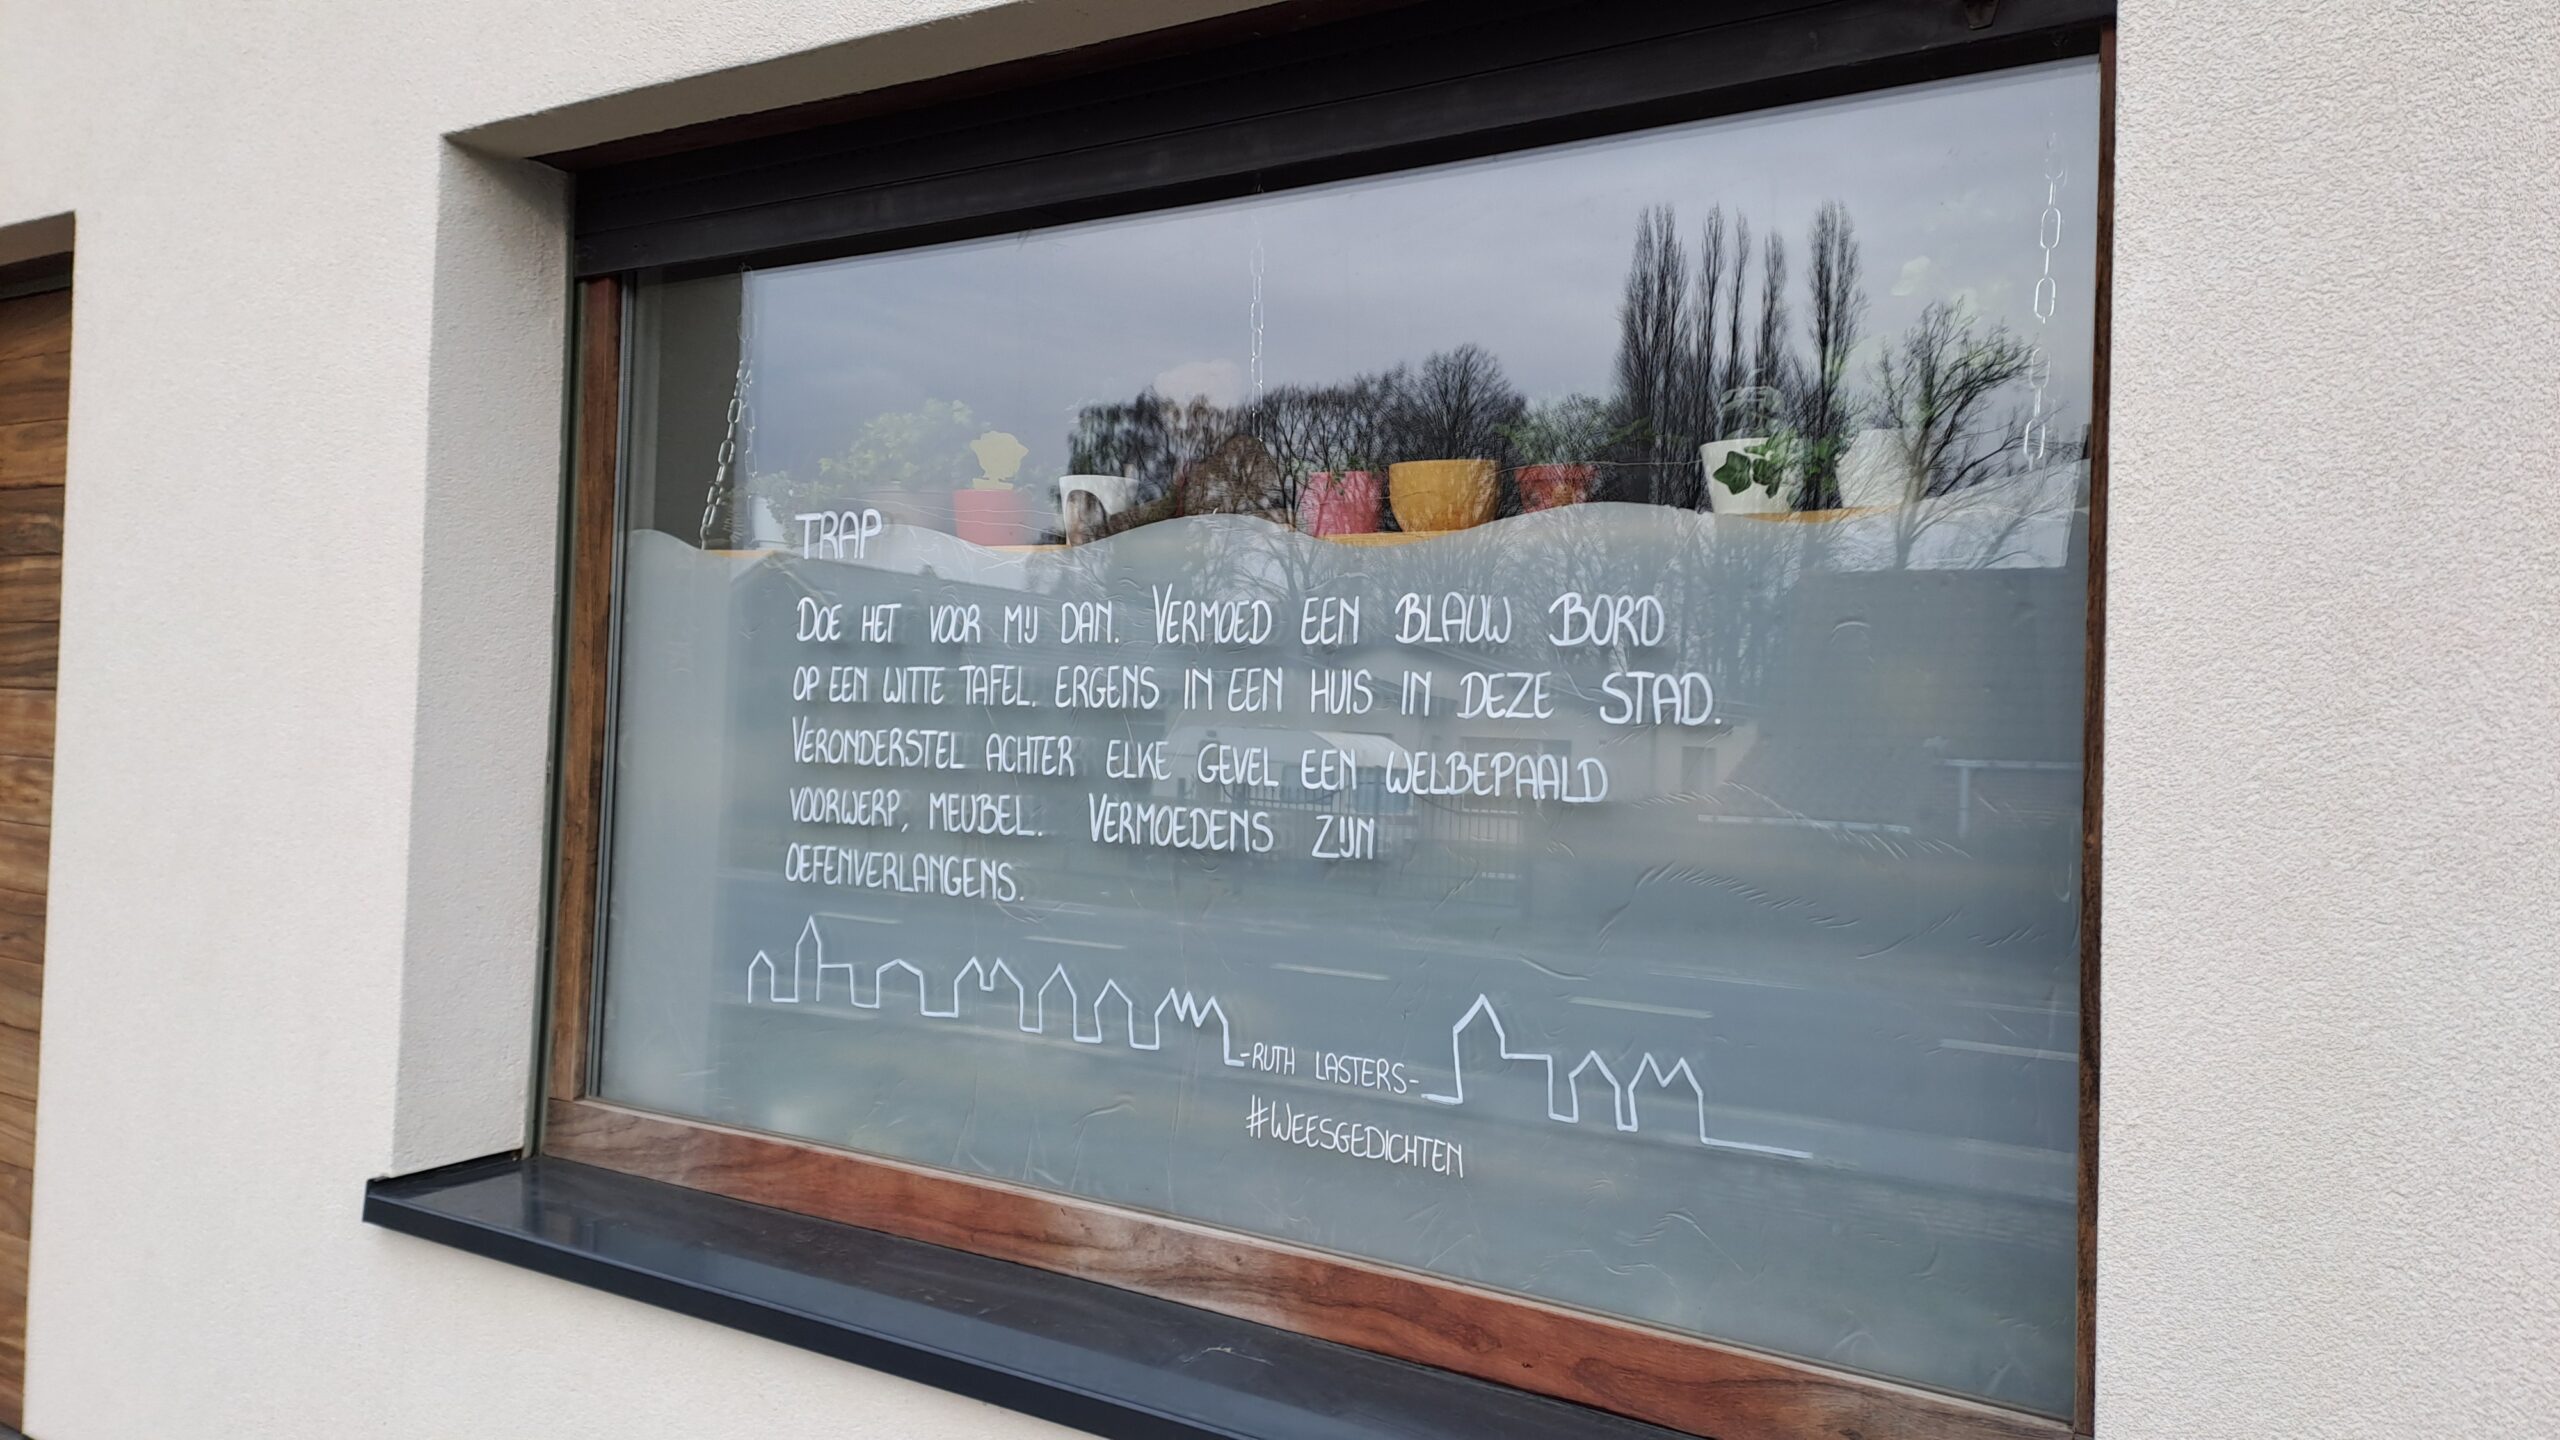 TRAP
DOE HET VOOR MIJ DAN. VERMOED EEN BLAUW BORD
OP EEN WITTE TAFEL. ERGENS IN EEN HUIS IN DEZE STAD.
VERONDERSTEL ACHTER ELKE GEVEL EEN WELBEPAALD
VOORWERP, MEUBEL. VERMOEDENS ZIJN
OEFENVERLANGENS.
-RUTH LASTERS-
#WEESGEDICHTEN